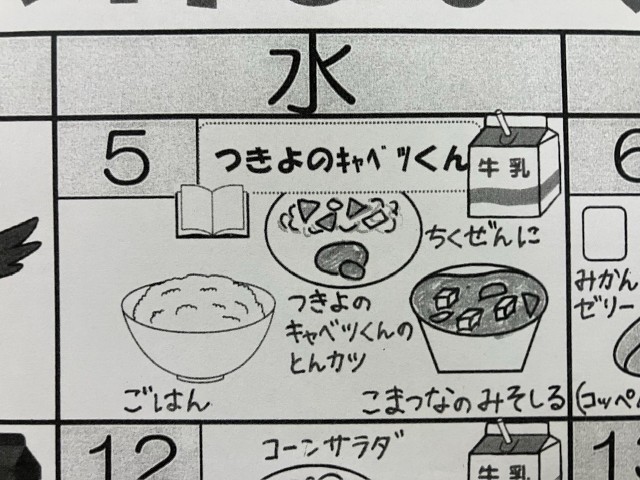 水
5
つきよのキャベツくん
牛乳
6
ちくぜんに
つきよの
キャベツくんの
とんカツ
みかん
ゼリー
ごはん
こまつなのみそしる
(コッペ
12
コーンサラダ
牛乳